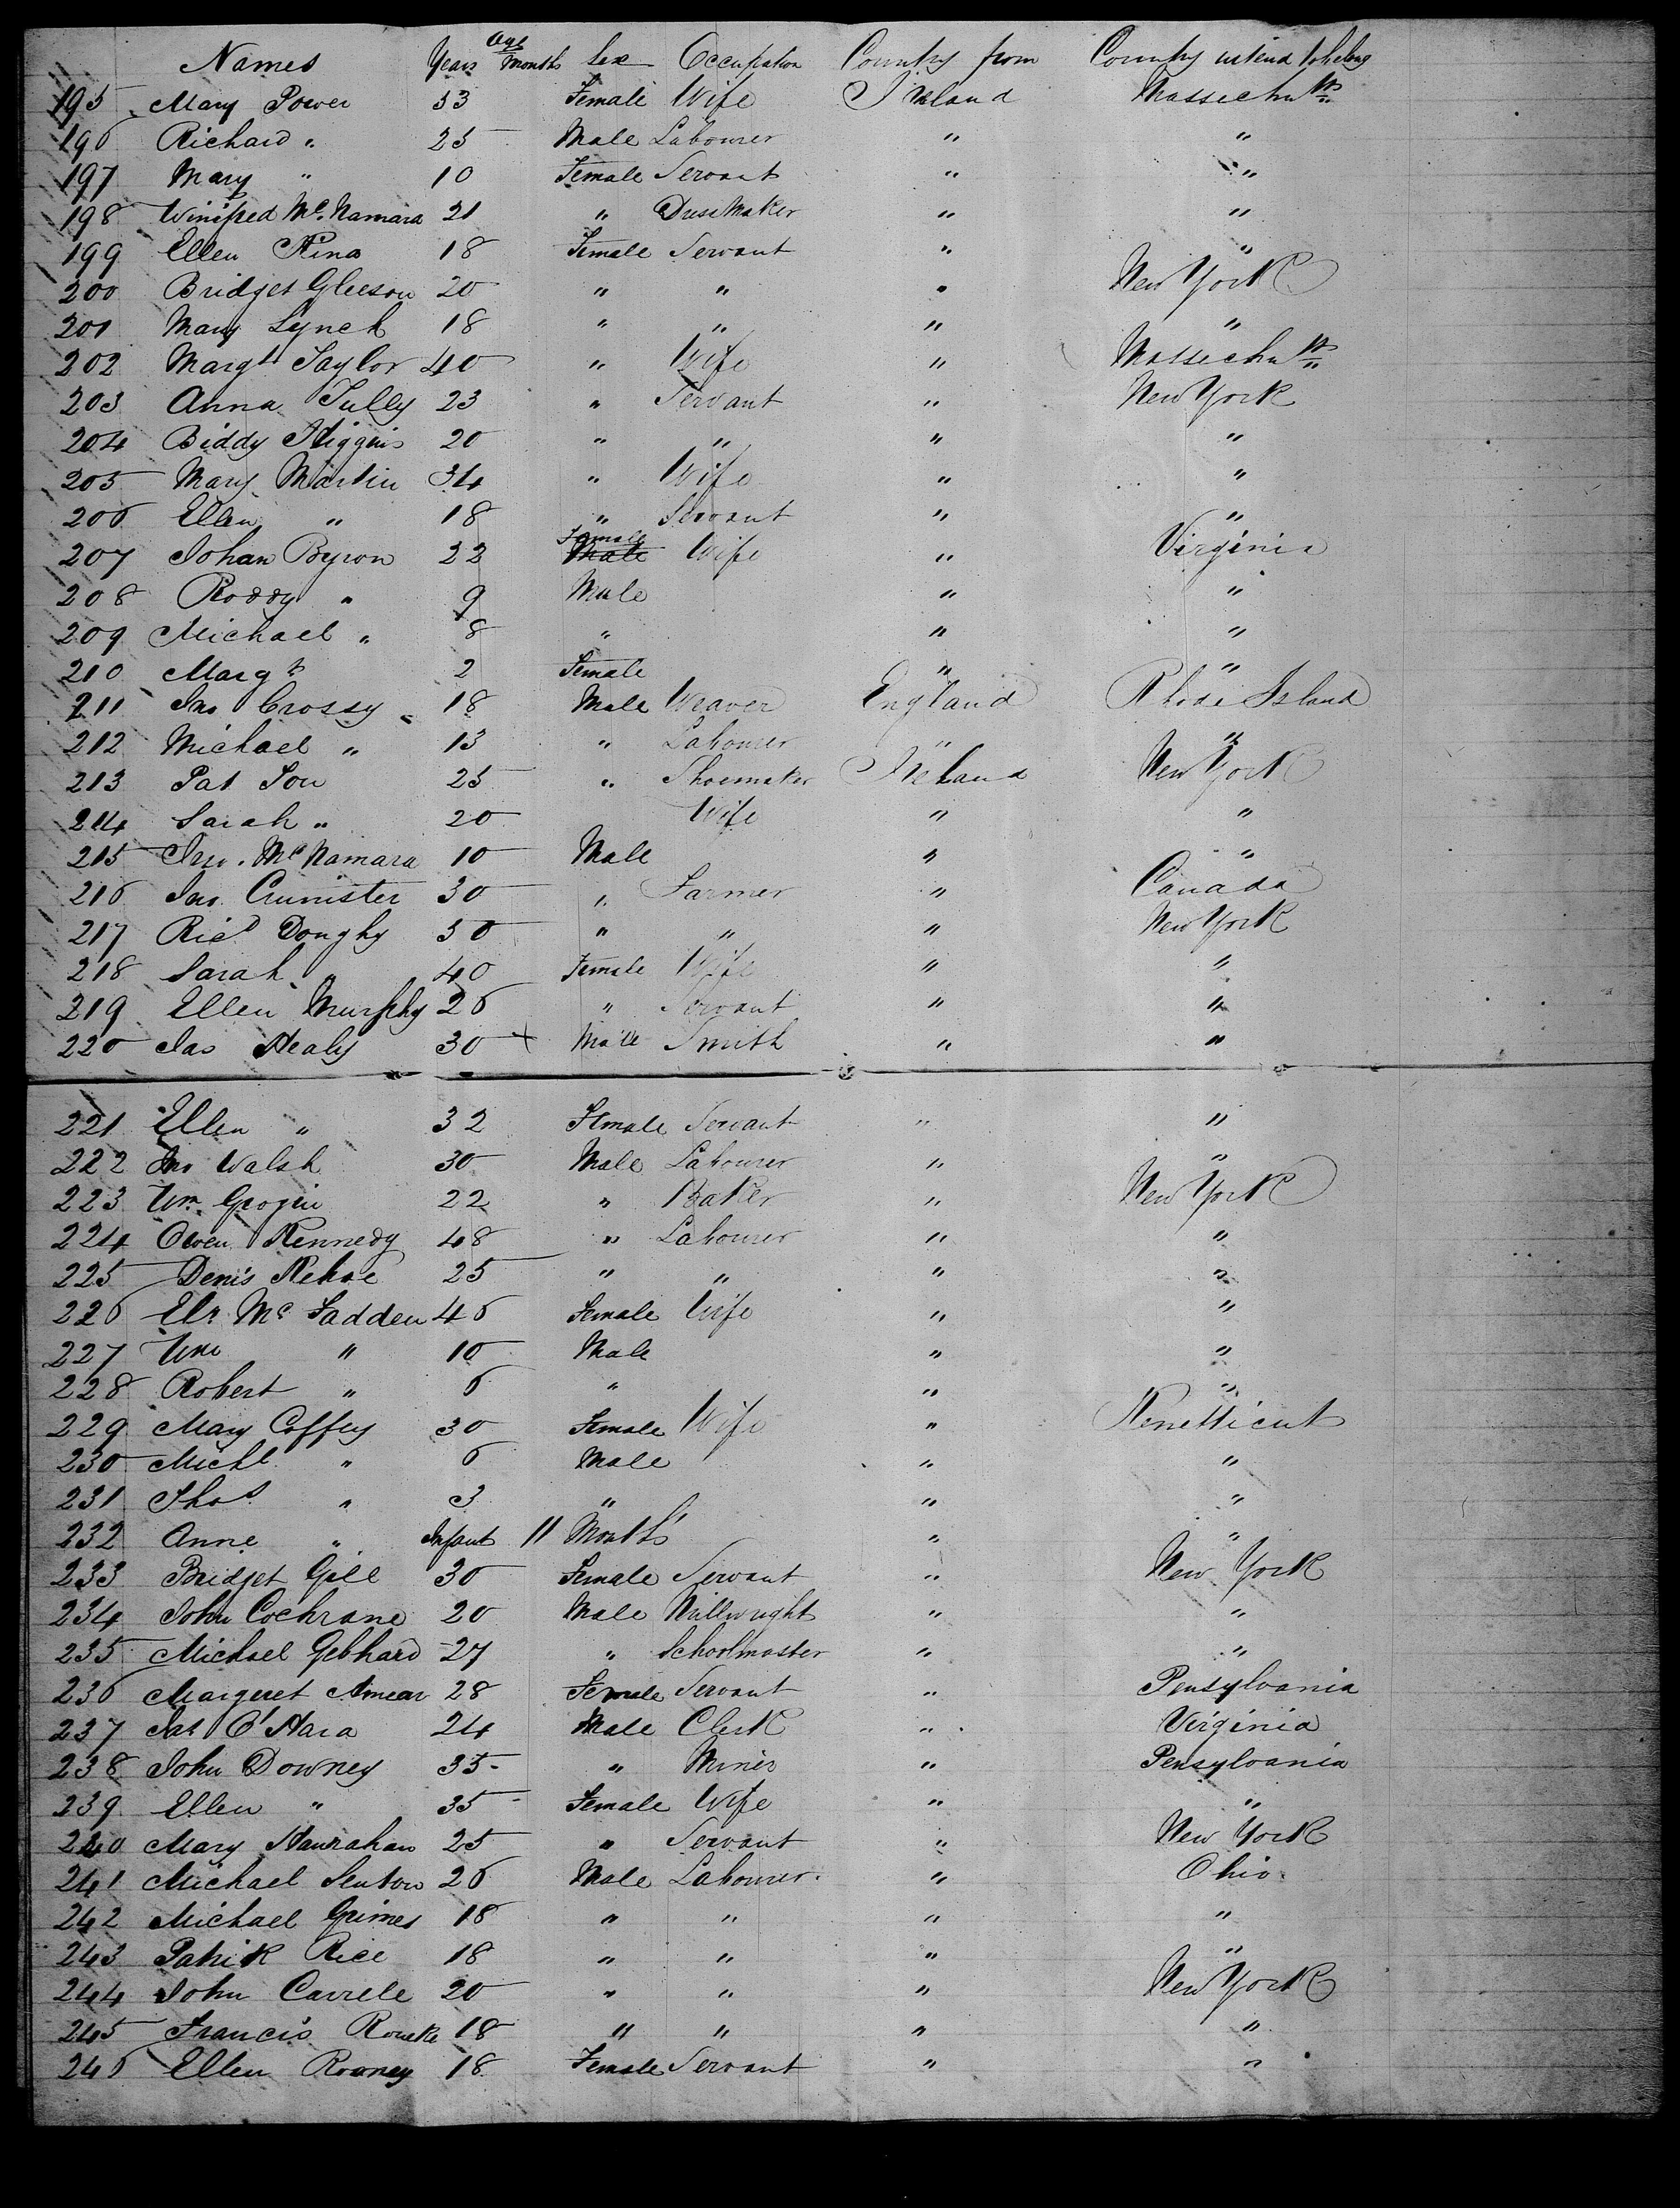 Names Years Age Months Sex Occupation Country from Country intend to belong
195 Mary Power 33 Female Wife Ireland Massechutts
196 Richard " 25 Male Labourer " "
197 Mary " 10 Female Servant " "
198 Winifred Mc.Namara 21 " Dressmaker " "
199 Ellen King 18 Female Servant " "
200 Bridget Gleeson 20 " " " New York
201 Mary Lynch 18 " " " "
202 Margt Taylor 40 " Wife " Massechutts
203 Anna Tully 23 " Servant " New York
204 Biddy Higgins 20 " " " "
205 Mary Martin 34 " Wife " "
206 Ellen " 18 " Servant " "
207 Johan Byron 22 Female Wife " Virginia
208 Roddy " 9 Male " "
209 Michael " 8 " " "
210 Margt 2 Female " "
211 Jno Crossy 18 Male Weaver England Rhode Island
212 Michael " 13 " Labourer " "
213 Pat 25 " Shoemaker Ireland New York
214 Sarah " 20 Wife " "
215 Jno. McNamara 10 Male " "
216 Jno. 30 " Farmer " Canada
217 Ricd Doughy 50 " " " New York
218 Sarah " 40 Female Wife " "
219 Ellen Murphy 26 " Servant " "
220 Jas Healy 30 Male Smith " "
221 Ellen " 32 Female Servant " "
222 Jno Walsh 30 Male Labourer " "
223 Wm. Grogin 22 " Baker " New York
224 Owen Kennedy 48 " Labourer " "
225 Denis Kehoe 25 " " " "
226 Elr. Mc Fadden 46 Female Wife " "
227 Wm " 10 Male " "
228 Robert " 6 " " "
229 Mary Coffey 30 Female Wife " Kenetticut
230 Michl " 6 Male " "
231 Thos " 3 " " "
232 Anne " Infant 11 Months " "
233 Bridget Gill 30 Female Servant " New York
234 John Cochrane 20 Male Millwright " "
235 Michael Gebhard 27 " Schoolmaster " "
236 Margeret 28 Female Servant " Pensylvania
237 Pat O'Hara 24 Male Clerk " Virginia
238 John Downey 35 " Miner " Pensylvania
239 Ellen " 35 Female Wife " "
240 Mary Hanrahan 25 " Servant " New York
241 Michael Senton 26 Male Labourer " Ohio.
242 Michael Grimes 18 " " " "
243 Patrik Rice 18 " " " "
244 John Carrele 20 " " " New York
245 Francis Rourke 18 " " " "
246 Ellen Rooney 18 Female Servant " "